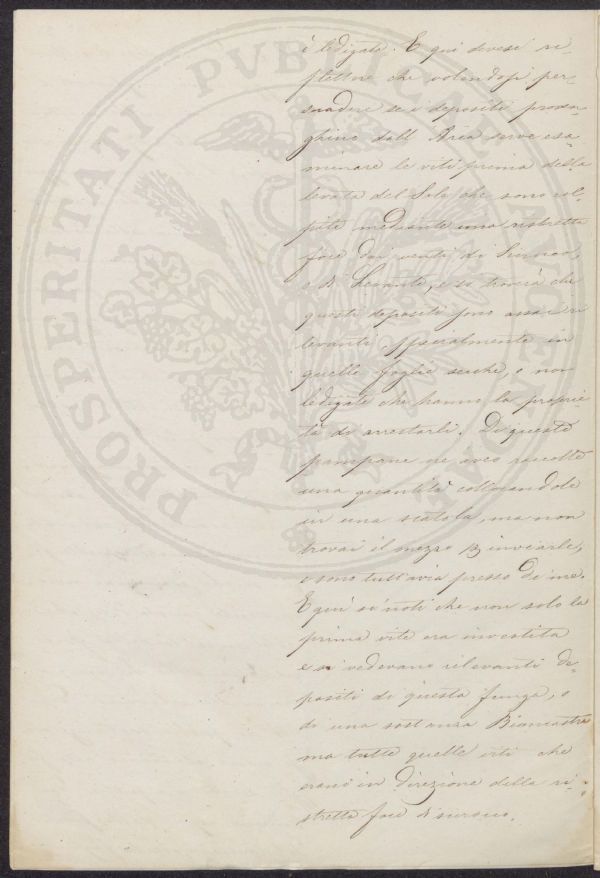 è ledigate. E qui devesi ri-
flettere che volendosi per-
suadere se i depositi proven-
ghino dall'Area serve esa-
minare le viti prima della
levata del Sole che sono col-
pite mediante una ristretta
foce dai venti di Sirocco,
o di Levante, e si troverà che
questi depositi sono assai ri
levanti specialmente in
quelle foglie secche, o non
ledigate che hanno la proprie
tà di arrestarli. Di queste
pampane ne avea raccolte
una quantità collocandole
in una scatola, ma non
trovai il mezzo inviarle,
e sono tutt'avia presso di me.
E quì si noti che non solo la
prima vite era investita
e si vedevano rilevanti de-
positi di questa funga, e
di una sostanza Biancastra
ma tutte quelle viti che
erano in direzione della ri-
stretta foce di sirocco.
PROSPERITATI PVBLICAE AVGENDAE